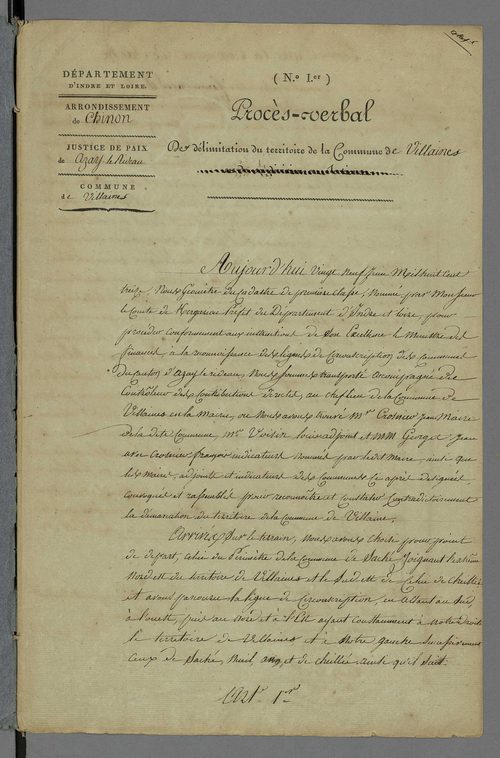 DÉPARTEMENT
D'INDRE ET LOIRE.
ARRONDISSEMENT
de Chinon
JUSTICE DE PAIX
de Azay le Rideau
COMMUNE
de Villaines
( N.º I.er )
Procès-verbal
De délimitation du territoire de la Commune de Villaines
Aujourd'hui Vingt Neuf Juin Mil huit Cent
treize, Nous Géomètre du Cadastre de première classe, Nommé par Monsieur
le Comte de Kergariou Préfet du Département d'Indre et Loire, pour
procéder Conformément aux intentions de Son Excellence le Ministre des
finances, à la reconnaissance des lignes de Circonscription des Communes
du Canton d'Azay le rideau, Nous sommes transporté accompagné du
Contrôleur des Contributions directes, au chef lieu de la Commune de
Villaines en la Mairie, où Nous avons trouvé Mr. Crosnier Jean Maire
de la dite Commune, Mr. Voisin Louis adjoint et MM George Jean
et Crosnier françois indicateurs Nommés par le dit Maire, ainsi que
les Maires, adjoints et indicateurs des Communes Ci après désignées,
Convoqués et rassemblés pour reconnoître et Constater Contradictoirement
la démarcation du territoire de la Commune de Villaines.
Arrivés Sur le terrain, Nous avons Choisi pour point
de départ, celui du Périmètre de la Commune de Saché Joignant
Nord Est du territoire de Villaines et le Sud Est de Celui de Cheillé
et avons parcouru la ligne de Circonscription, en allant au Sud,
à l'ouest, puis au Nord et à l'Est ayant Constamment à Notre droite
le territoire de Villaines et à Notre gauche Successivement
Ceux de Saché, et de Cheillé ainsi qu'il Suit.
Art. 1er